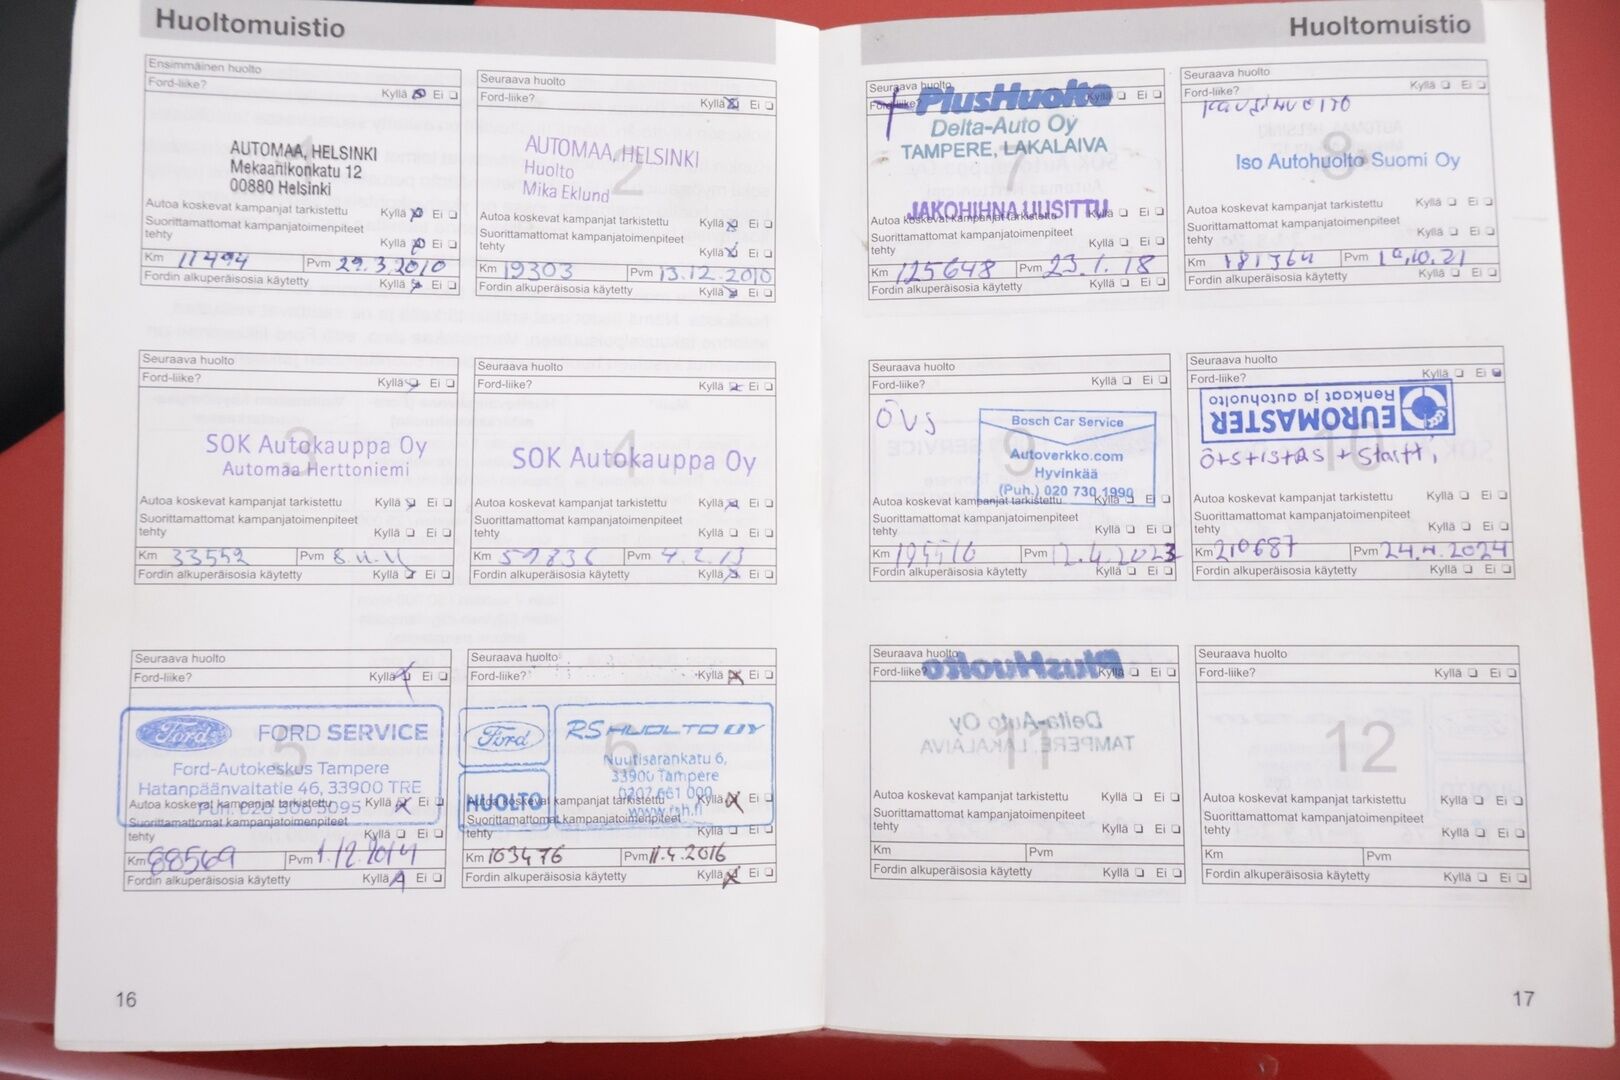 Huoltomuistio
Ensimmäinen huolto
Ford-liike? Kyllä Ei
1
AUTOMAA, HELSINKI
Mekaanikonkatu 12
00880 Helsinki
Autoa koskevat kampanjat tarkistettu Kyllä Ei
Suorittamattomat kampanjatoimenpiteet
tehty Kyllä Ei
Km 11494 Pvm 29.3.2010
Fordin alkuperäisosia käytetty Kyllä Ei
Seuraava huolto
Ford-liike? Kyllä Ei
2
AUTOMAA, HELSINKI
Huolto
Mika Eklund
Autoa koskevat kampanjat tarkistettu Kyllä Ei
Suorittamattomat kampanjatoimenpiteet
tehty Kyllä Ei
Km 19303 Pvm 13.12.2010
Fordin alkuperäisosia käytetty Kyllä Ei
Seuraava huolto
Ford-liike? Kyllä Ei
3
SOK Autokauppa Oy
Automaa Herttoniemi
Autoa koskevat kampanjat tarkistettu Kyllä Ei
Suorittamattomat kampanjatoimenpiteet
tehty Kyllä Ei
Km 33552 Pvm 8.11.11
Fordin alkuperäisosia käytetty Kyllä Ei
Seuraava huolto
Ford-liike? Kyllä Ei
4
SOK Autokauppa Oy
Autoa koskevat kampanjat tarkistettu Kyllä Ei
Suorittamattomat kampanjatoimenpiteet
tehty Kyllä Ei
Km Pvm 4.2.13
Fordin alkuperäisosia käytetty Kyllä Ei
Seuraava huolto
Ford-liike? Kyllä Ei
5
Ford FORD SERVICE
Ford-Autokeskus Tampere
Hatanpäänvaltatie 46, 33900 TRE
Puh. 020 506 5095
Autoa koskevat kampanjat tarkistettu Kyllä Ei
Suorittamattomat kampanjatoimenpiteet
tehty Kyllä Ei
Km 88569 Pvm 1.12.2014
Fordin alkuperäisosia käytetty Kyllä Ei
Seuraava huolto
Ford-liike? Kyllä Ei
6
Ford RS HUOLTO OY
Nuutisarankatu 6,
33900 Tampere
0207 661 000
HUOLTO
www.rsh.fi
Autoa koskevat kampanjat tarkistettu Kyllä Ei
Suorittamattomat kampanjatoimenpiteet
tehty Kyllä Ei
Km 103476 Pvm 11.4.2016
Fordin alkuperäisosia käytetty Kyllä Ei
16
Huoltomuistio
Seuraava huolto
Ford-liike? Kyllä Ei
7
PlusHuolto
Delta-Auto Oy
TAMPERE, LAKALAIVA
JAKOHIHNA UUSITTU
Autoa koskevat kampanjat tarkistettu Kyllä Ei
Suorittamattomat kampanjatoimenpiteet
tehty Kyllä Ei
Km 125648 Pvm 23.1.18
Fordin alkuperäisosia käytetty Kyllä Ei
Seuraava huolto
Ford-liike? Kyllä Ei
8
Kausihuolto
Iso Autohuolto Suomi Oy
Autoa koskevat kampanjat tarkistettu Kyllä Ei
Suorittamattomat kampanjatoimenpiteet
tehty Kyllä Ei
Km 181364 Pvm 19.10.21
Fordin alkuperäisosia käytetty Kyllä Ei
Seuraava huolto
Ford-liike? Kyllä Ei
9
ÖVS
Bosch Car Service
Autoverkko.com
Hyvinkää
(Puh.) 020 730 1990
Autoa koskevat kampanjat tarkistettu Kyllä Ei
Suorittamattomat kampanjatoimenpiteet
tehty Kyllä Ei
Km 195516 Pvm 12.4.2023
Fordin alkuperäisosia käytetty Kyllä Ei
Seuraava huolto
Ford-liike? Kyllä Ei
10
EUROMASTER
Renkaat ja autohuolto
Autoa koskevat kampanjat tarkistettu Kyllä Ei
Suorittamattomat kampanjatoimenpiteet
tehty Kyllä Ei
Km 210687 Pvm 24.4.2024
Fordin alkuperäisosia käytetty Kyllä Ei
Seuraava huolto
Ford-liike? Kyllä Ei
11
PlusHuolto
Delta-Auto Oy
TAMPERE, LAKALAIVA
Autoa koskevat kampanjat tarkistettu Kyllä Ei
Suorittamattomat kampanjatoimenpiteet
tehty Kyllä Ei
Km Pvm
Fordin alkuperäisosia käytetty Kyllä Ei
Seuraava huolto
Ford-liike? Kyllä Ei
12
Autoa koskevat kampanjat tarkistettu Kyllä Ei
Suorittamattomat kampanjatoimenpiteet
tehty Kyllä Ei
Km Pvm
Fordin alkuperäisosia käytetty Kyllä Ei
17